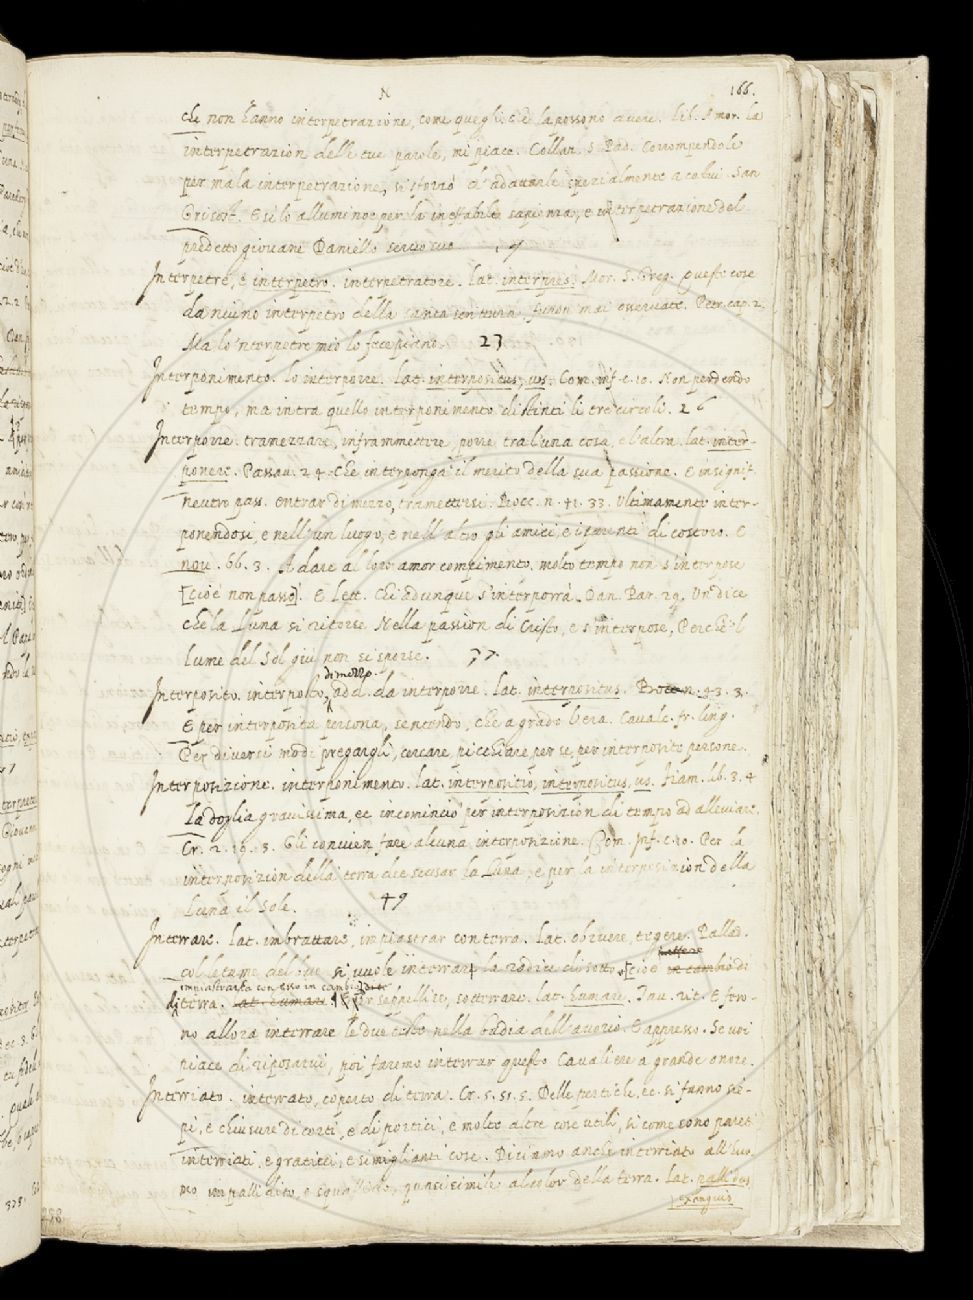 N 166.
che non hanno interpetrazione, come quegli, che la possono avere. Lib. Amor. La
interpetrazion delle tue parole, mi piace. Collaz. S. Pad. Corrompendole
per mala interpetrazione, si sforzò d'adattarle spezialmente a colui. San
Grisost. E sì lo alluminoe per la ineffabile sapienza, e interpetrazione del
predetto giovane Daniello servo suo
Interpetre, e interpetro. interpetratore. Lat. interpres. Mor. S. Greg. Queste cose
da niuno interpetro della santa scrittura furon mai overcate. Petr. cap. 2.
Ma lo 'nterpetre mio lo fece piano. 23
Interponimento. Lo interporre. Lat. interpositus, us. Com. Inf. c. 10. Non perdendo
tempo, ma intra quello interponimento distinti li tre circoli. 26
Interporre. tramezzare, inframmettere, porre tra l'una cosa, e l'altra. Lat. inter-
ponere. Passau. 24. Che interponga il merito della sua passione. E in signif.
neutro pass. entrar di mezzo, tramettersi. Bocc. n. 41. 33. Ultimamente inter-
ponendosi, e nell'un luogo, e nell'altro gli amici, e i parenti di costoro. E
nov. 66. 3. A dare al loro amor compimento, molto tempo non s'interpose
[cioè non passò]. E Lett. Chi adunque s'interporrà. Dan. Par. 29. Un dice
che la Luna si ritorse Nella passion di Cristo, e s'interpose, Perchè 'l
lume del Sol giù non si sporse. 37.
Interposito. interposto, di mezzo. add. da interporre. Lat. interpositus. Bocc. n. 43. 3.
E per interposita persona, sentendo, che a grado l'era. Cavalc. fr. ling.
Per diversi modi pregargli, cercare, picchiare, per se, per interposite persone.
Interposizione. interponimento. Lat. interpositio, interpositus, us. Fiam. lib. 3. 4
La doglia gravissima, ec. incominciò per interposizion di tempo ad alleviare.
Cr. 2. 19. 3. Gli convien fare alcuna interposizione. Com. Inf. c. 10. Per la
interposizion della terra che scusar la Luna, e per la interposizion della
Luna il Sole. 49
Interrare. Lat. imbrattare, impiastrar con terra. Lat. obruere, tegere. Pallad.
Col letame del bue si vuole interrare la radice di sotto [cioè in cambio di
impiastrarla con esso in cambio
di terra. Lat. humare. Per seppellire, sotterrare. Lat. humare. Tav. rit. E foro-
no allora interrare le due teste nella badia dell'avorio. E appresso. Se voi
piace di riposarvi, poi faremo interrar questo Cavaliere a grande onore.
Interriato. interrato, coperto di terra. Cr. 5. 51. 5. Delle pertiche, ec. si fanno sie-
pi, e chiusure di corti, e di portici, e molte altre cose utili, sì come sono pareti
interriati, e graticci, e simiglianti cose. Diciamo anche interriato all'huo
mo impallidito, e squallido, quasi simile al color della terra. Lat. pallidus
exanguis